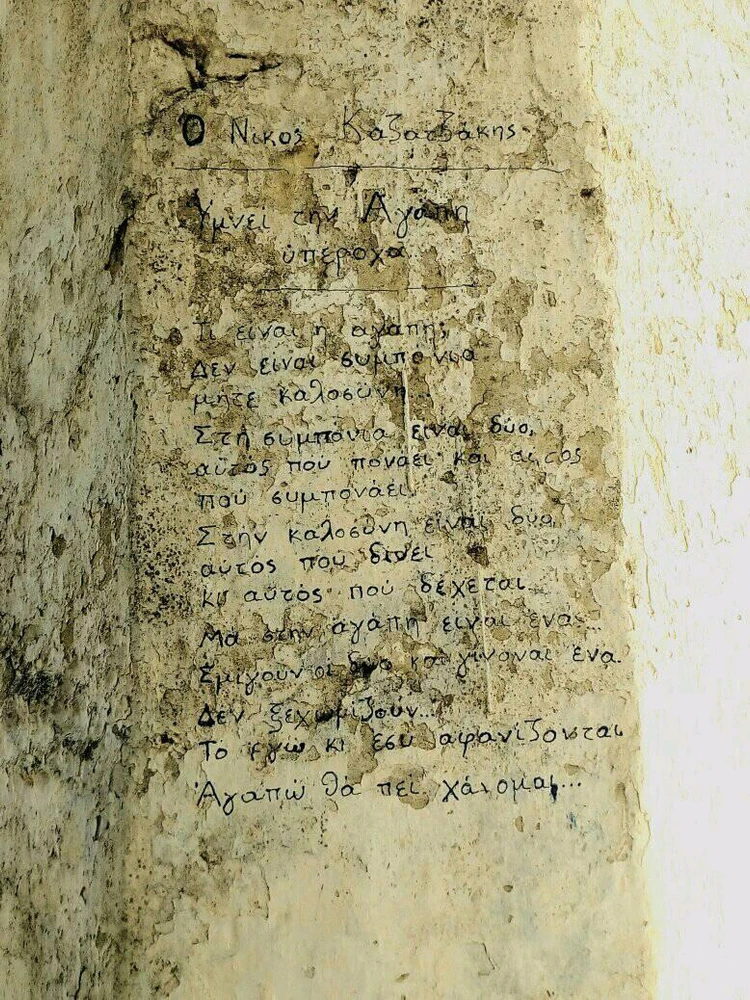 Ὁ Νικος Καζατζάκης
Ύμνεί την Αγάπη
ὑπέροχα
Τι είναι η αγάπη;
Δεν είναι συμπόνια
μήτε καλοσύνη...
Στή συμπόνια είναι δύο,
αὐτός πού πονάει και αὐτός
πού συμπονάει.
Στην καλοσύνη είναι δύο
αὐτός πού δίνει
κι αὐτός πού δέχεται...
Μα στην αγάπη είναι ένα...
Σμίγουν οι δυο και γίνονται ένα.
Δεν ξεχωρίζουν...
Τὸ εγω κι εσυ αφανίζονται
Ἀγαπώ θα πεί χάνομαι...